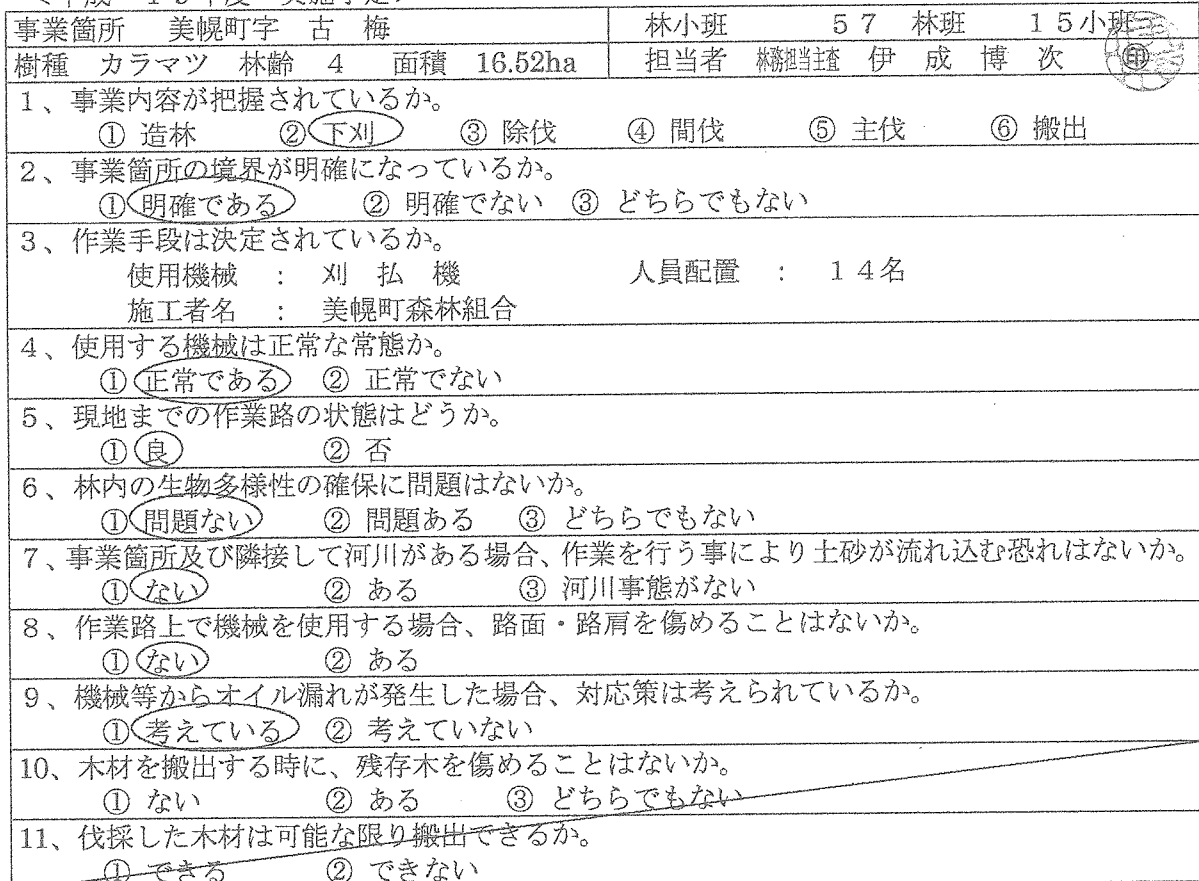 事業箇所 美幌町字 古 梅 林小班 57 林班 15小班
樹種 カラマツ 林齢 4 面積 16.52ha 担当者 林務担当主査 伊 成 博 次 ㊞
1、事業内容が把握されているか。
① 造林 ② 下刈 ③ 除伐 ④ 間伐 ⑤ 主伐 ⑥ 搬出
2、事業箇所の境界が明確になっているか。
① 明確である ② 明確でない ③ どちらでもない
3、作業手段は決定されているか。
使用機械 : 刈 払 機 人員配置 : 14名
施工者名 : 美幌町森林組合
4、使用する機械は正常な常態か。
① 正常である ② 正常でない
5、現地までの作業路の状態はどうか。
① 良 ② 否
6、林内の生物多様性の確保に問題はないか。
① 問題ない ② 問題ある ③ どちらでもない
7、事業箇所及び隣接して河川がある場合、作業を行う事により土砂が流れ込む恐れはないか。
① ない ② ある ③ 河川事態がない
8、作業路上で機械を使用する場合、路面・路肩を傷めることはないか。
① ない ② ある
9、機械等からオイル漏れが発生した場合、対応策は考えられているか。
① 考えている ② 考えていない
10、木材を搬出する時に、残存木を傷めることはないか。
① ない ② ある ③ どちらでもない
11、伐採した木材は可能な限り搬出できるか。
① できる ② できない